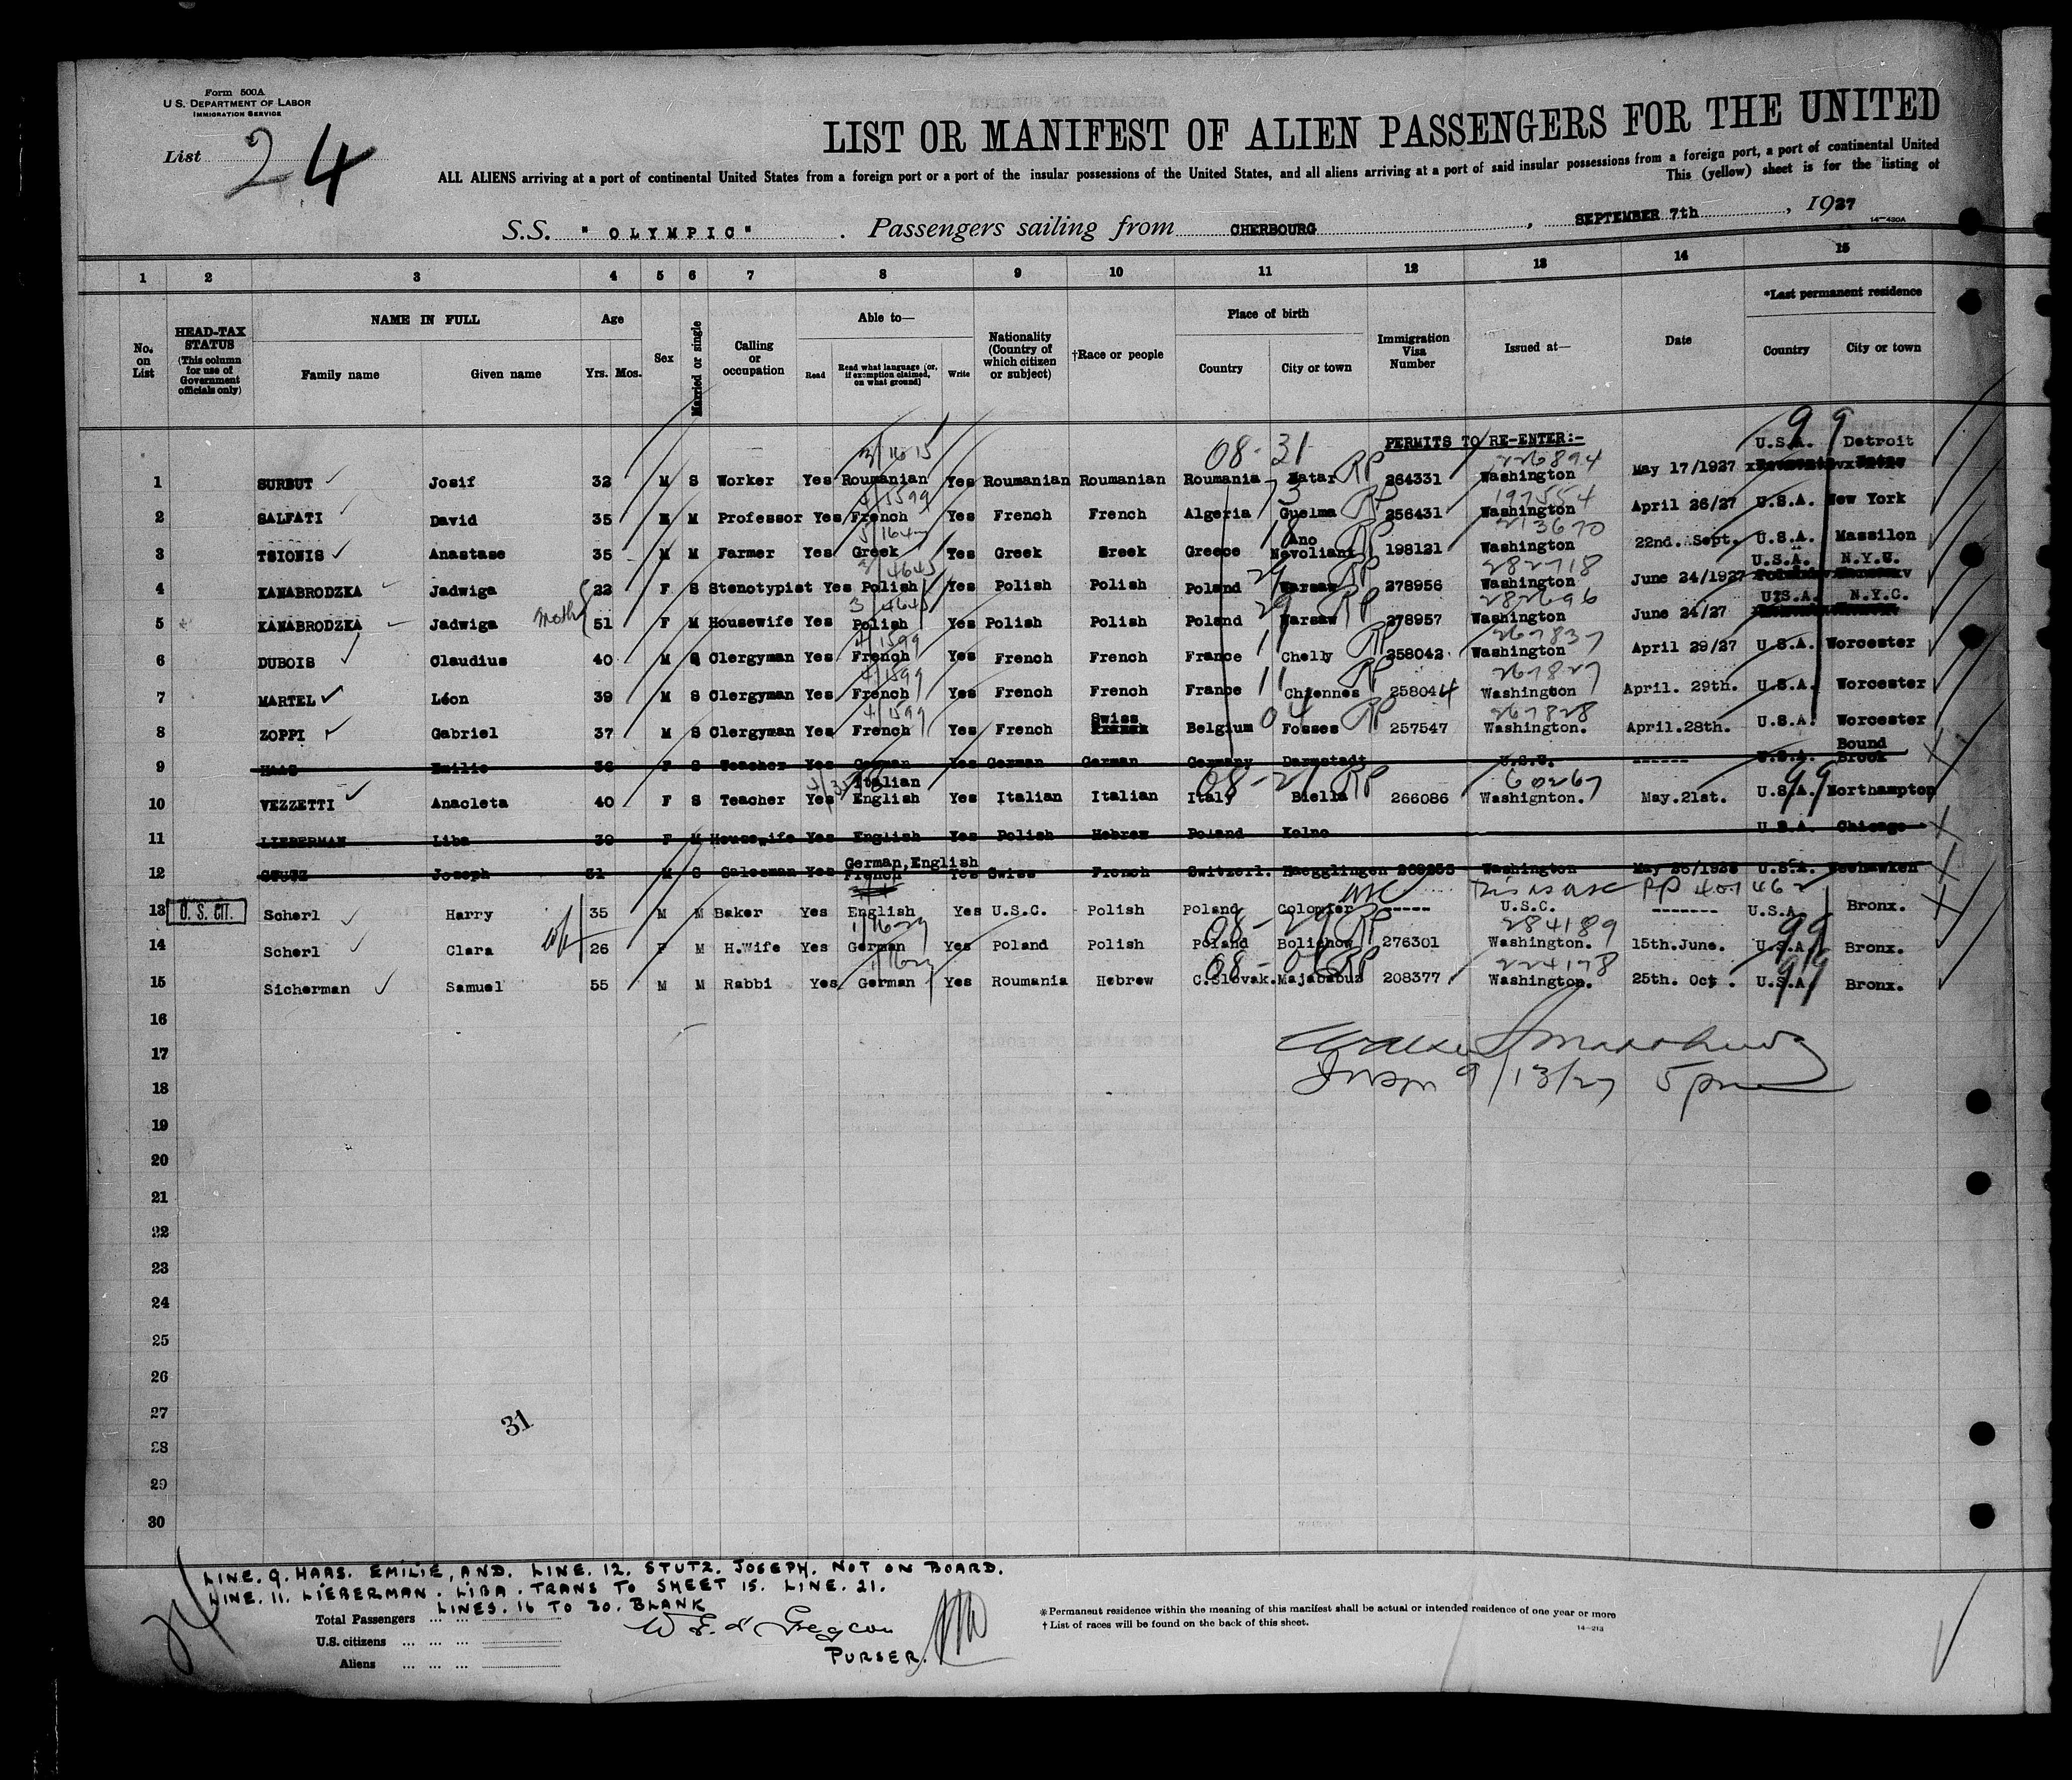 Form 500A
U.S. DEPARTMENT OF LABOR
IMMIGRATION SERVICE
List 24
LIST OR MANIFEST OF ALIEN PASSENGERS FOR THE UNITED
ALL ALIENS arriving at a port of continental United States from a foreign port or a port of the insular possessions of the United States, and all aliens arriving at a port of said insular possessions from a foreign port, a port of continental United
This (yellow) sheet is for the listing of
S.S. "OLYMPIC". Passengers sailing from CHERBOURG, SEPTEMBER 7th, 1927
14-430A
1 2 3 4 5 6 7 8 9 10 11 12 13 14 15
No. on List
HEAD-TAX STATUS (This column for use of Government officials only)
NAME IN FULL
Family name Given name
Age
Yrs. Mos.
Sex
Married or single
Calling or occupation
Able to—
Read Read what language (or, if exemption claimed, on what ground) Write
Nationality (Country of which citizen or subject)
†Race or people
Place of birth
Country City or town
Immigration Visa Number
Issued at—
Date
*Last permanent residence
Country City or town
PERMITS TO RE-ENTER:-
08-31
3/1615 226894 U.S.A. Detroit 99
1 SURBUT Josif 32 M S Worker Yes Roumanian Yes Roumanian Roumanian Roumania Matar RP 264331 Washington May 17/1927
4/1599 73 197554
2 SALFATI David 35 M M Professor Yes French Yes French French Algeria Guelma RP 256431 Washington April 26/27 U.S.A. New York
18 213670
3 TSIONIS Anastase 35 M M Farmer Yes Greek Yes Greek Greek Greece Ano Nevoliani RP 198121 Washington 22nd. Sept. U.S.A. Massilon
3/4645 29 282718 U.S.A. N.Y.C.
4 KANABRODZKA Jadwiga 22 F S Stenotypist Yes Polish Yes Polish Polish Poland Warsaw RP 278956 Washington June 24/1927
3/4645 29 282696 U.S.A. N.Y.C.
5 KANABRODZKA Jadwiga mother 51 F M Housewife Yes Polish Yes Polish Polish Poland Warsaw RP 278957 Washington June 24/27
4/1599 11 267837
6 DUBOIS Claudius 40 M S Clergyman Yes French Yes French French France Chelly RP 258042 Washington April 29/27 U.S.A. Worcester
4/1599 11 267827
7 MARTEL Léon 39 M S Clergyman Yes French Yes French French France Chiennes RP 258044 Washington April. 29th. U.S.A. Worcester
4/1599 04 267828
8 ZOPPI Gabriel 37 M S Clergyman Yes French Yes French Swiss French Belgium Fosses RP 257547 Washington. April.28th. U.S.A. Worcester
9 HAAS Emilie 36 F S Teacher Yes German Yes German German Germany Darmstadt ------ U.S.A. Bound Brook
08-21 60267 99
10 VEZZETTI Anacleta 40 F S Teacher Yes Italian English Yes Italian Italian Italy Biella RP 266086 Washignton. May.21st. U.S.A. Northampton
11 LIEBERMAN Liba 39 F M Housewife Yes English Yes Polish Hebrew Poland Kolno U.S.A. Chicago
12 STUTZ Joseph 31 M S Salesman Yes German,English French Yes Swiss French Switzerl. Haegglingen Washington U.S.A. Weehawken
This is USC PP 407462
13 U.S. CIT. Scherl Harry 35 M M Baker Yes English Yes U.S.C. Polish Poland ----- U.S.C. ------- U.S.A. Bronx.
08-29 284189 99
14 Scherl Clara wife 26 F M H.Wife Yes German Yes Poland Polish Poland Bolichow RP 276301 Washington. 15th.June. U.S.A. Bronx.
224178 99
15 Sicherman Samuel 55 M M Rabbi Yes German Yes Roumania Hebrew C.Slovak. RP 208377 Washington. 25th. Oct. U.S.A. Bronx.
16
17
Insp 9/13/27 5 pm
18
19
20
21
22
23
24
25
26
27
31
28
29
30
LINE. 9. HAAS. EMILIE, AND. LINE. 12. STUTZ. JOSEPH. NOT ON BOARD.
LINE. 11. LIEBERMAN. LIBA. TRANS TO SHEET 15. LINE. 21.
LINES. 16 TO 30. BLANK
24
Total Passengers ... ...
U.S. citizens ... ... ...
Aliens ... ... ...
PURSER.
*Permanent residence within the meaning of this manifest shall be actual or intended residence of one year or more
† List of races will be found on the back of this sheet.
14-213